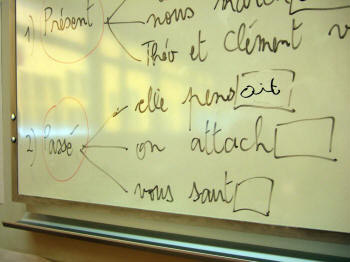 1) Présent
nous march
Théo et Clément v
2) Passé
elle pens ait
on attach
vous saut